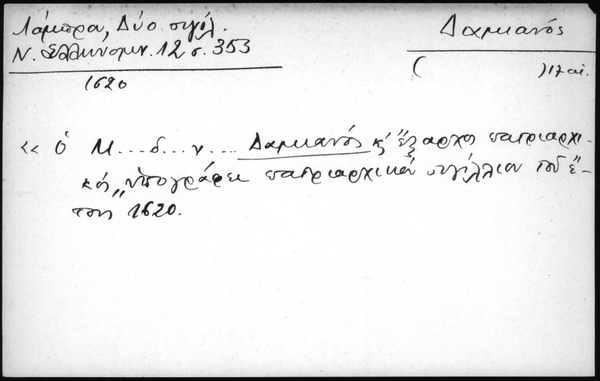 Λάμπρα, Δύο σιγίλ.
Ν. Ελληνομν. 12 σ. 353
1620
Δαμιανός
( ) 17 αι.
<< ὁ Μ...δ...ν... Δαμιανός κ' ἔξαρχος πατριαρχι-
κός,, ὑπογράφει πατριαρχικόν σιγίλλιον τοῦ ἔ-
τους 1620.